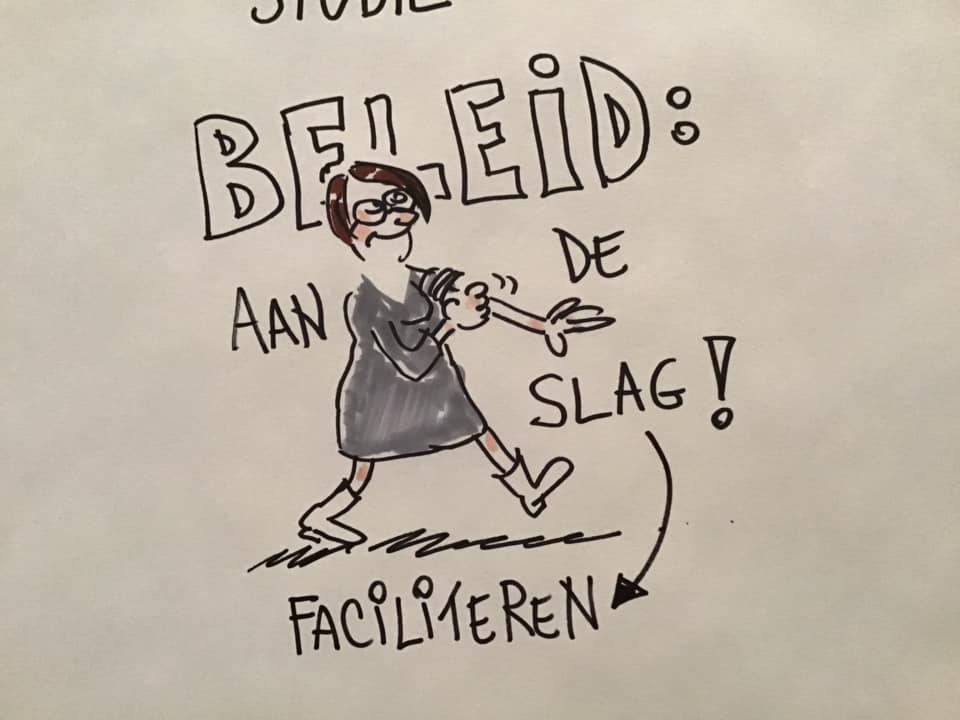 BELEID:
AAN DE
SLAG!
FACILITEREN